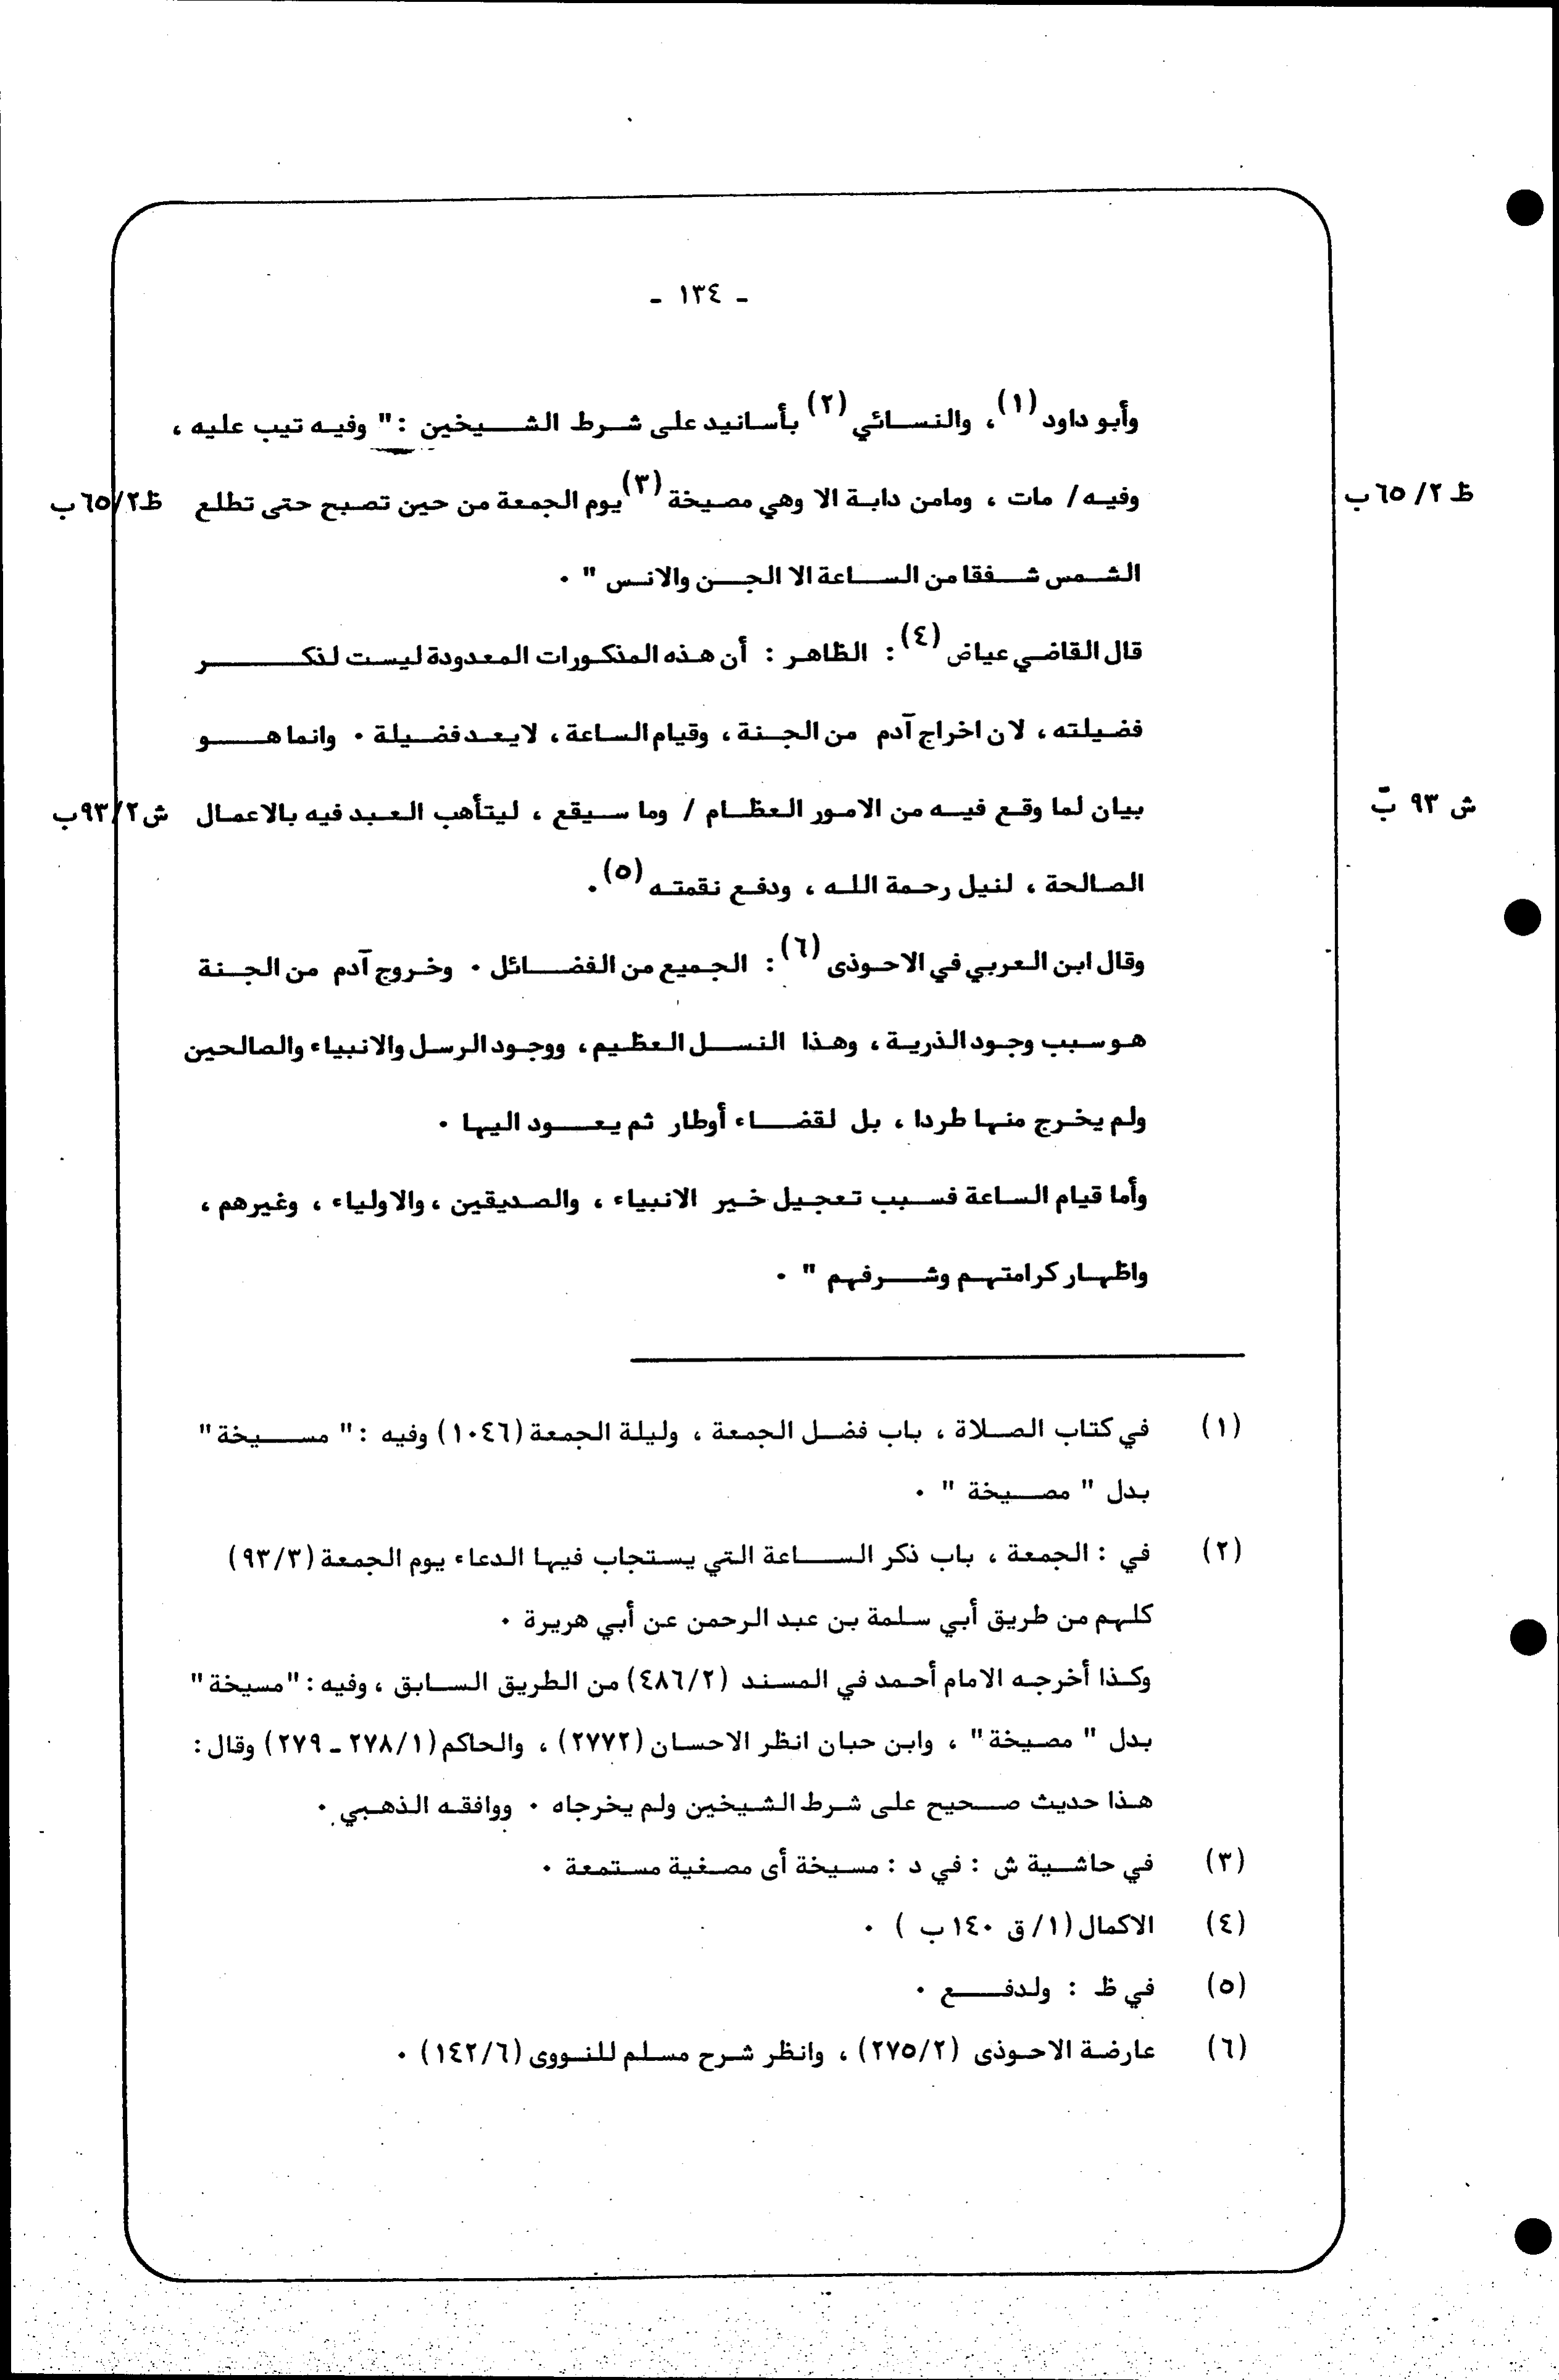 - ١٣٤ -
وأبو داود (١)، والنسائي (٢) بأسانيد على شرط الشيخين : " وفيه تيب عليه ،
ظ ٢/ ٦٥ ب وفيه / مات ، ومامن دابة الا وهي مصيخة (٣) يوم الجمعة من حين تصبح حتى تطلع ظ٢/ ٦٥ب
الشمس شفقا من الساعة الا الجن والانس " .
قال القاضي عياض (٤) : الظاهر : أن هذه المذكورات المعدودة ليست لذكر
فضيلته ، لان اخراج آدم من الجنة ، وقيام الساعة ، لايعد فضيلة . وانما هو
ش ٩٣ ب بيان لما وقع فيه من الامور العظام / وما سيقع ، ليتأهب العبد فيه بالاعمال ش ٢/ ٩٣ب
الصالحة ، لنيل رحمة الله ، ودفع نقمته (٥) .
وقال ابن العربي في الاحوذى (٦) : الجميع من الفضائل . وخروج آدم من الجنة
هو سبب وجود الذرية ، وهذا النسل العظيم ، ووجود الرسل والانبياء والصالحين
ولم يخرج منها طردا ، بل لقضاء أوطار ثم يعود اليها .
وأما قيام الساعة فسبب تعجيل خير الانبياء ، والصديقين ، والاولياء ، وغيرهم ،
واظهار كرامتهم وشرفهم " .
(١) في كتاب الصلاة ، باب فضل الجمعة ، وليلة الجمعة (١٠٤٦) وفيه : " مسيخة "
بدل " مصيخة " .
(٢) في : الجمعة ، باب ذكر الساعة التي يستجاب فيها الدعاء يوم الجمعة (٩٣/٣)
كلهم من طريق أبي سلمة بن عبد الرحمن عن أبي هريرة .
وكذا أخرجه الامام أحمد في المسند (٤٨٦/٢) من الطريق السابق ، وفيه : "مسيخة "
بدل " مصيخة " ، وابن حبان انظر الاحسان (٢٧٧٢) ، والحاكم (٢٧٨/١ - ٢٧٩) وقال :
هذا حديث صحيح على شرط الشيخين ولم يخرجاه . ووافقه الذهبي .
(٣) في حاشية ش : في د : مسيخة أى مصغية مستمعة .
(٤) الاكمال (١/ ق ١٤٠ ب ) .
(٥) في ظ : ولدفع .
(٦) عارضة الاحوذى (٢٧٥/٢) ، وانظر شرح مسلم للنووى (١٤٢/٦) .